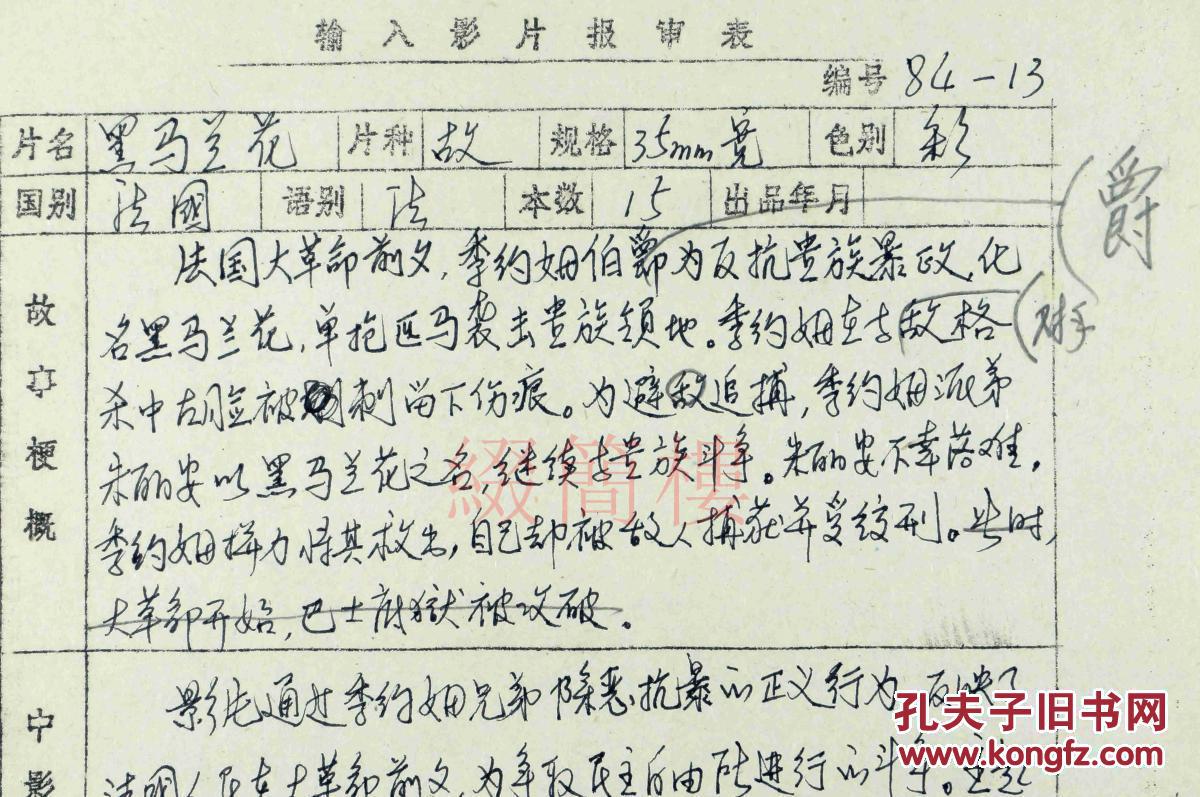 输入影片报审表
编号 84-13
片名 黑马兰花 片种 故 规格 35mm宽 色别 彩
国别 法國 语别 法 本数 15 出品年月
爵
对手
故事梗概
法国大革命前夕,季约姆伯爵为反抗贵族暴政,化
名黑马兰花,单抢匹马袭击贵族领地。季约姆在与敌格
杀中右脸被刺留下伤痕。为避敌追捕,季约姆派弟
朱丽安以黑马兰花之名,继续与贵族斗争。朱丽安不幸落难。
季约姆拼力将其救出,自己却被敌人捕获并受绞刑。此时,
大革命开始,巴士底獄被攻破。
綴簡樓
中影
影片通过季约姆兄弟除恶抗暴的正义行为,反映了
法国人民在大革命前夕,为争取民主自由所进行的斗争。主题
孔夫子旧书网
www.kongfz.com